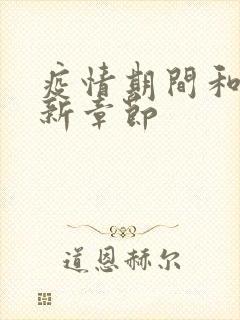 疫情期間和
新章節
道恩赫尔